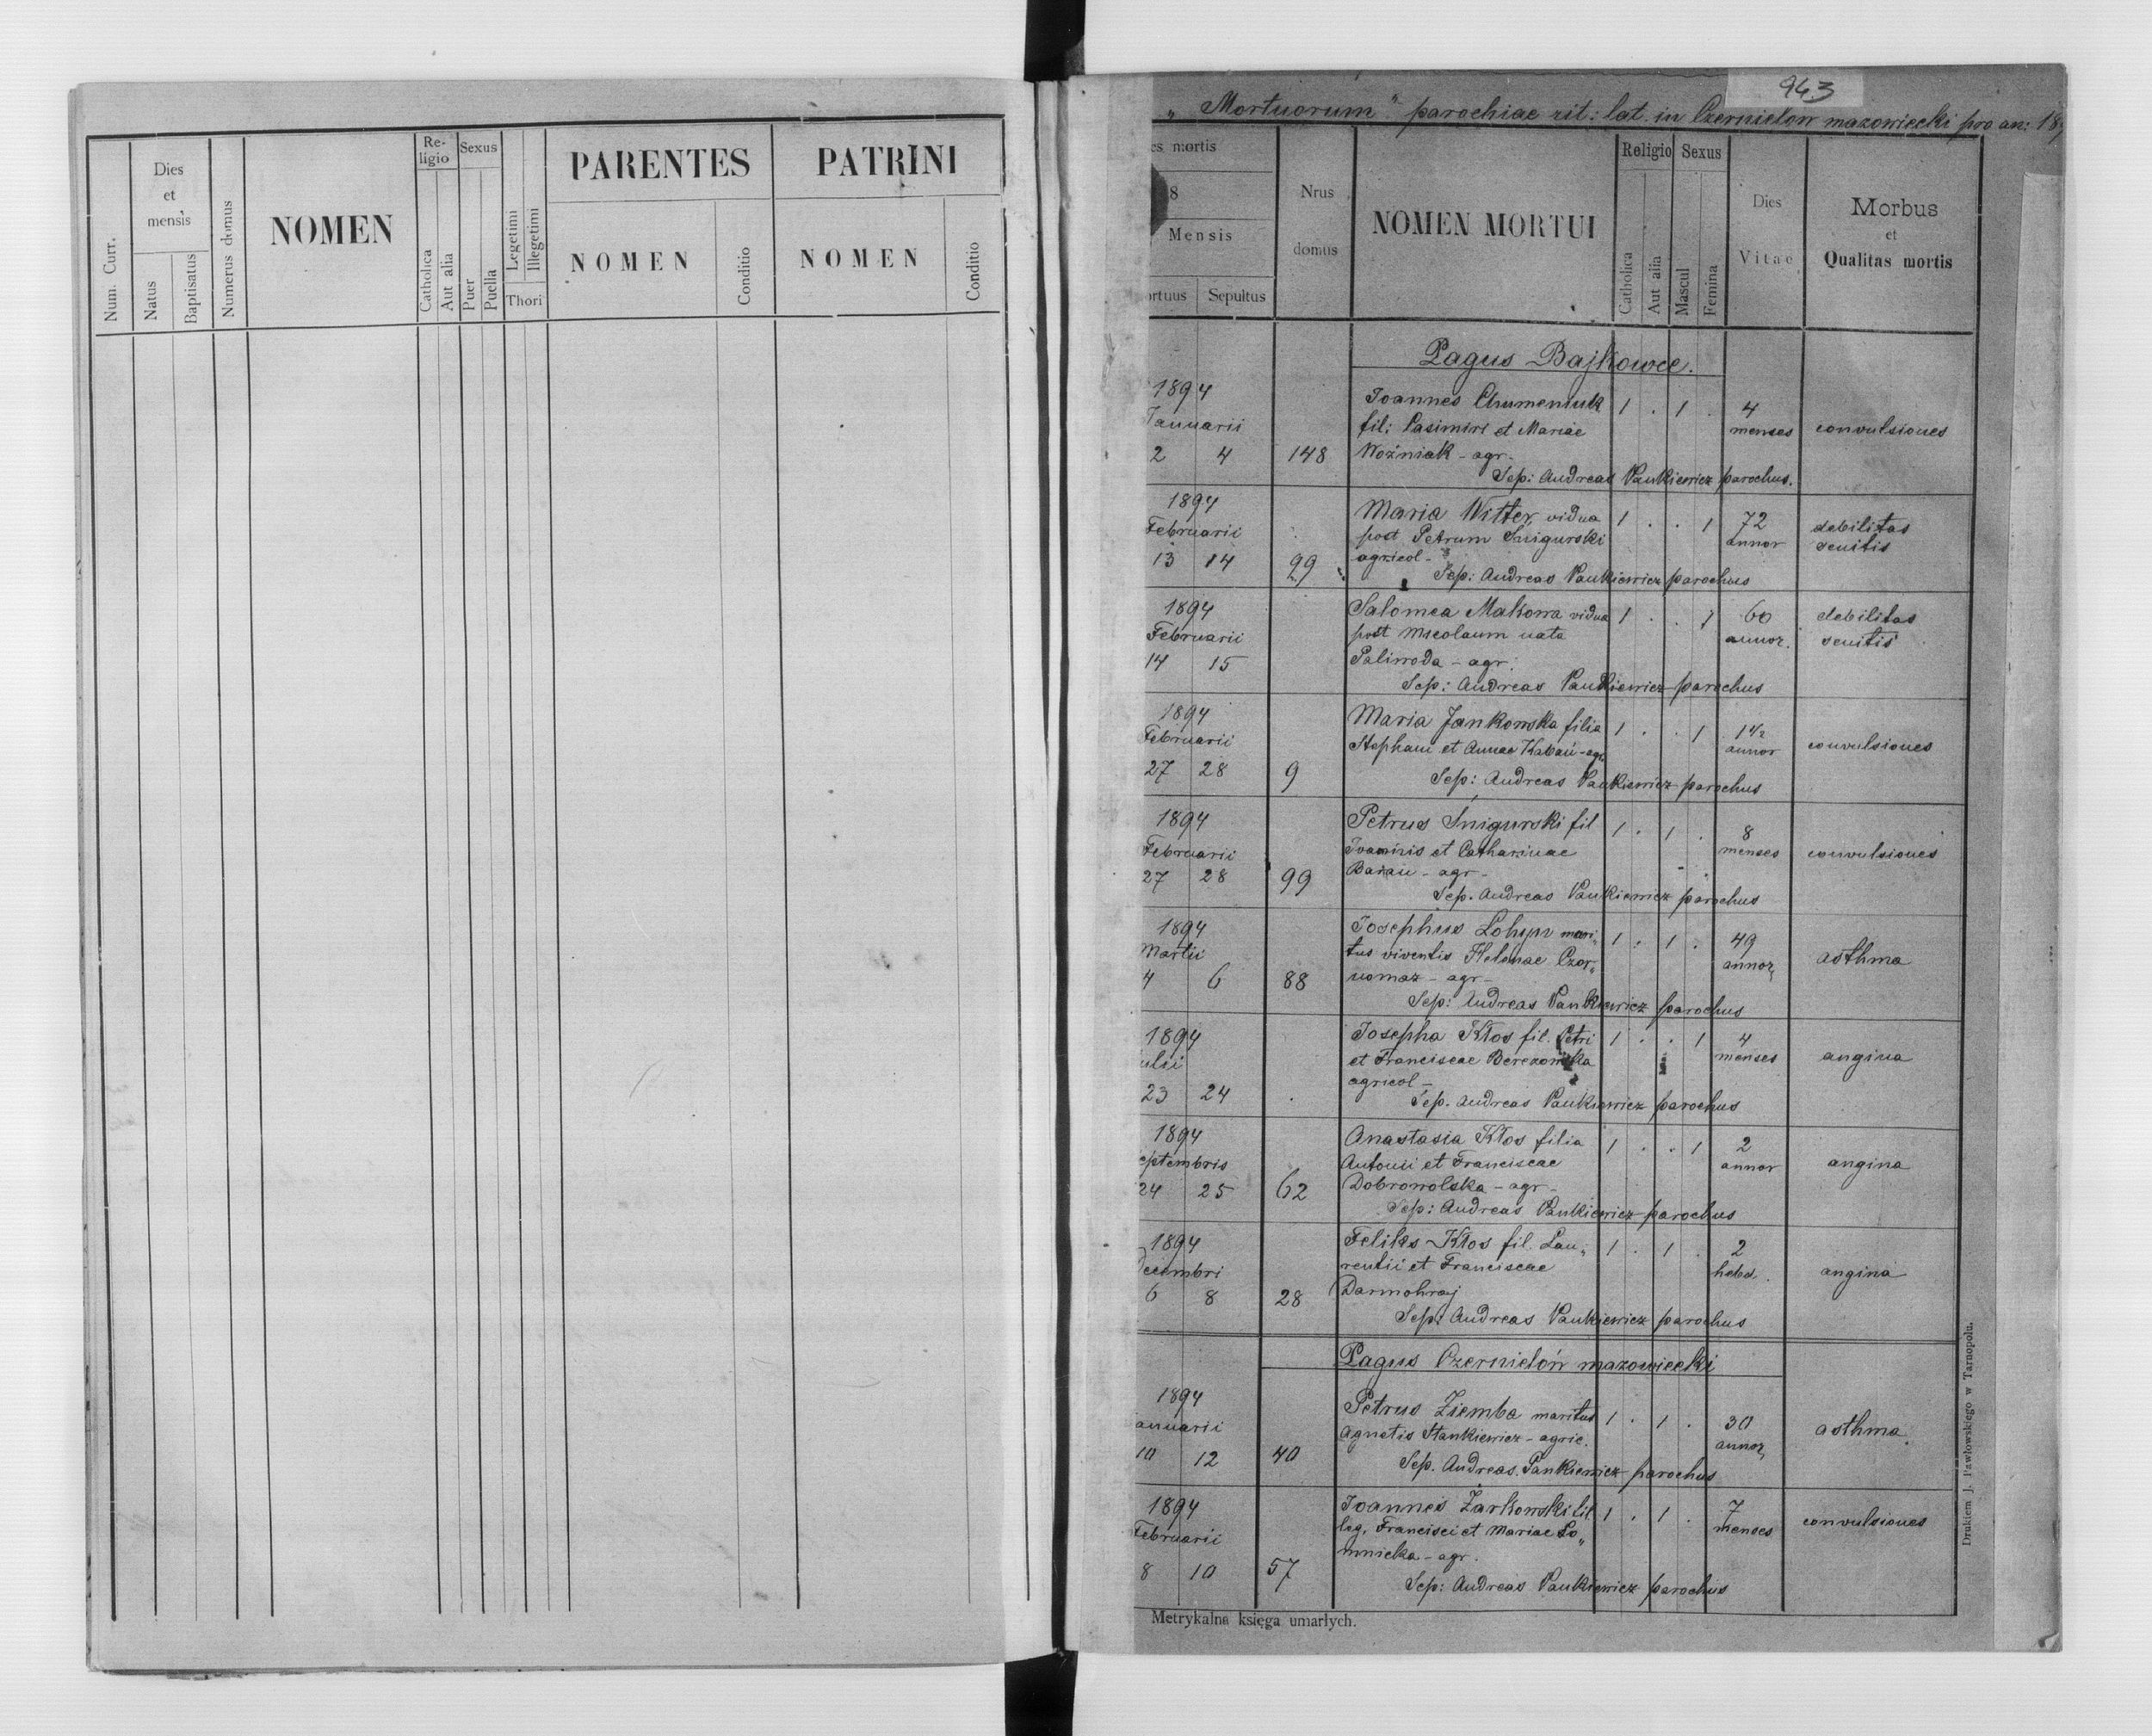 Num. Curr.
Dies
et
mensis
Natus
Baptisatus
Numerus domus
NOMEN
Re-
ligio
Catholica
Aut alia
Sexus
Puer
Puella
Legetimi
Illegetimi
Thori
PARENTES
NOMEN
Conditio
PATRINI
NOMEN
Conditio
963
"Mortuorum" parochiae rit: lat. in Czernielow mazowiecki pro an: 18
es mortis
8
Mensis
ortuus Sepultus
Nrus
domus
NOMEN MORTUI
Religio
Catholica
Aut alia
Sexus
Mascul
Femina
Dies
Vitae
Morbus
et
Qualitas mortis
Pagus Bajkowce.
1894
Januarii
2 4 148
Joannes Chumeniuk 1 . 1 . 4
fil: Casimiri et Mariae menses convulsiones
Woźniak - agr -
Sep: Andreas Pankiewicz parochus.
1894
Februarii
13 14 99
Maria Witter vidua 1 . . 1 72 debilitas
post Petrum Snigurski annor senilis
agricol -
Sep: Andreas Pankiewicz parochus
1894
Februarii
14 15
Salomea Makowa vidua 1 . . 1 60 debilitas
post Nicolaum nata annor. senilis
Paliwoda - agr:
Sep: Andreas Pankiewicz parochus
1894
Februarii
27 28 9
Maria Jankowska filia 1 . . 1 1 1/2
Stephani et Annae Kabań - agr annor convulsiones
Sep: Andreas Pankiewicz parochus
1894
Februarii
27 28 99
Petrus Snigurski fil 1 . 1 . 8
Joannis et Catharinae menses convulsiones
Baran - agr -
Sep. Andreas Pankiewicz parochus
1894
Martii
4 6 88
Josephus mari„ 1 . 1 . 49
tus viventis Helenae Czor„ annor asthma
nomaz - agr -
Sep: Andreas Pankiewicz parochus
1894
ulii
23 24 .
Josepha Kłos fil. Petri 1 . . 1 4
et Franciscae Berezowska menses angina
agricol -
Sep. Andreas Pankiewicz parochus
1894
eptembris
24 25 62
Anastasia Kłos filia 1 . . 1 2
Antonii et Franciscae annor angina
Dobrowolska - agr -
Sep: Andreas Pankiewicz parochus
1894
Decembri
6 8 28
Feliks Kłos fil. Lau„ 1 . 1 . 2
rentii et Franciscae hebd. angina
Darmohraj
Sep: Andreas Pankiewicz parochus
Pagus Czernielów mazowiecki
1894
anuarii
10 12 40
Petrus Ziemba maritus 1 . 1 . 30
Agnetis Stankiewicz - agric. annor asthma
Sep. Andreas Pankiewicz parochus
1894
Februarii
8 10 57
Joannes Żarkowski fil 1 . 1 . 7
leg. Francisci et Mariae Ło„ menses convulsiones
mnicka - agr.
Sep: Andreas Pankiewicz parochus
Metrykalna księga umarłych.
Drukiem J. Pawłowskiego w Tarnopolu.